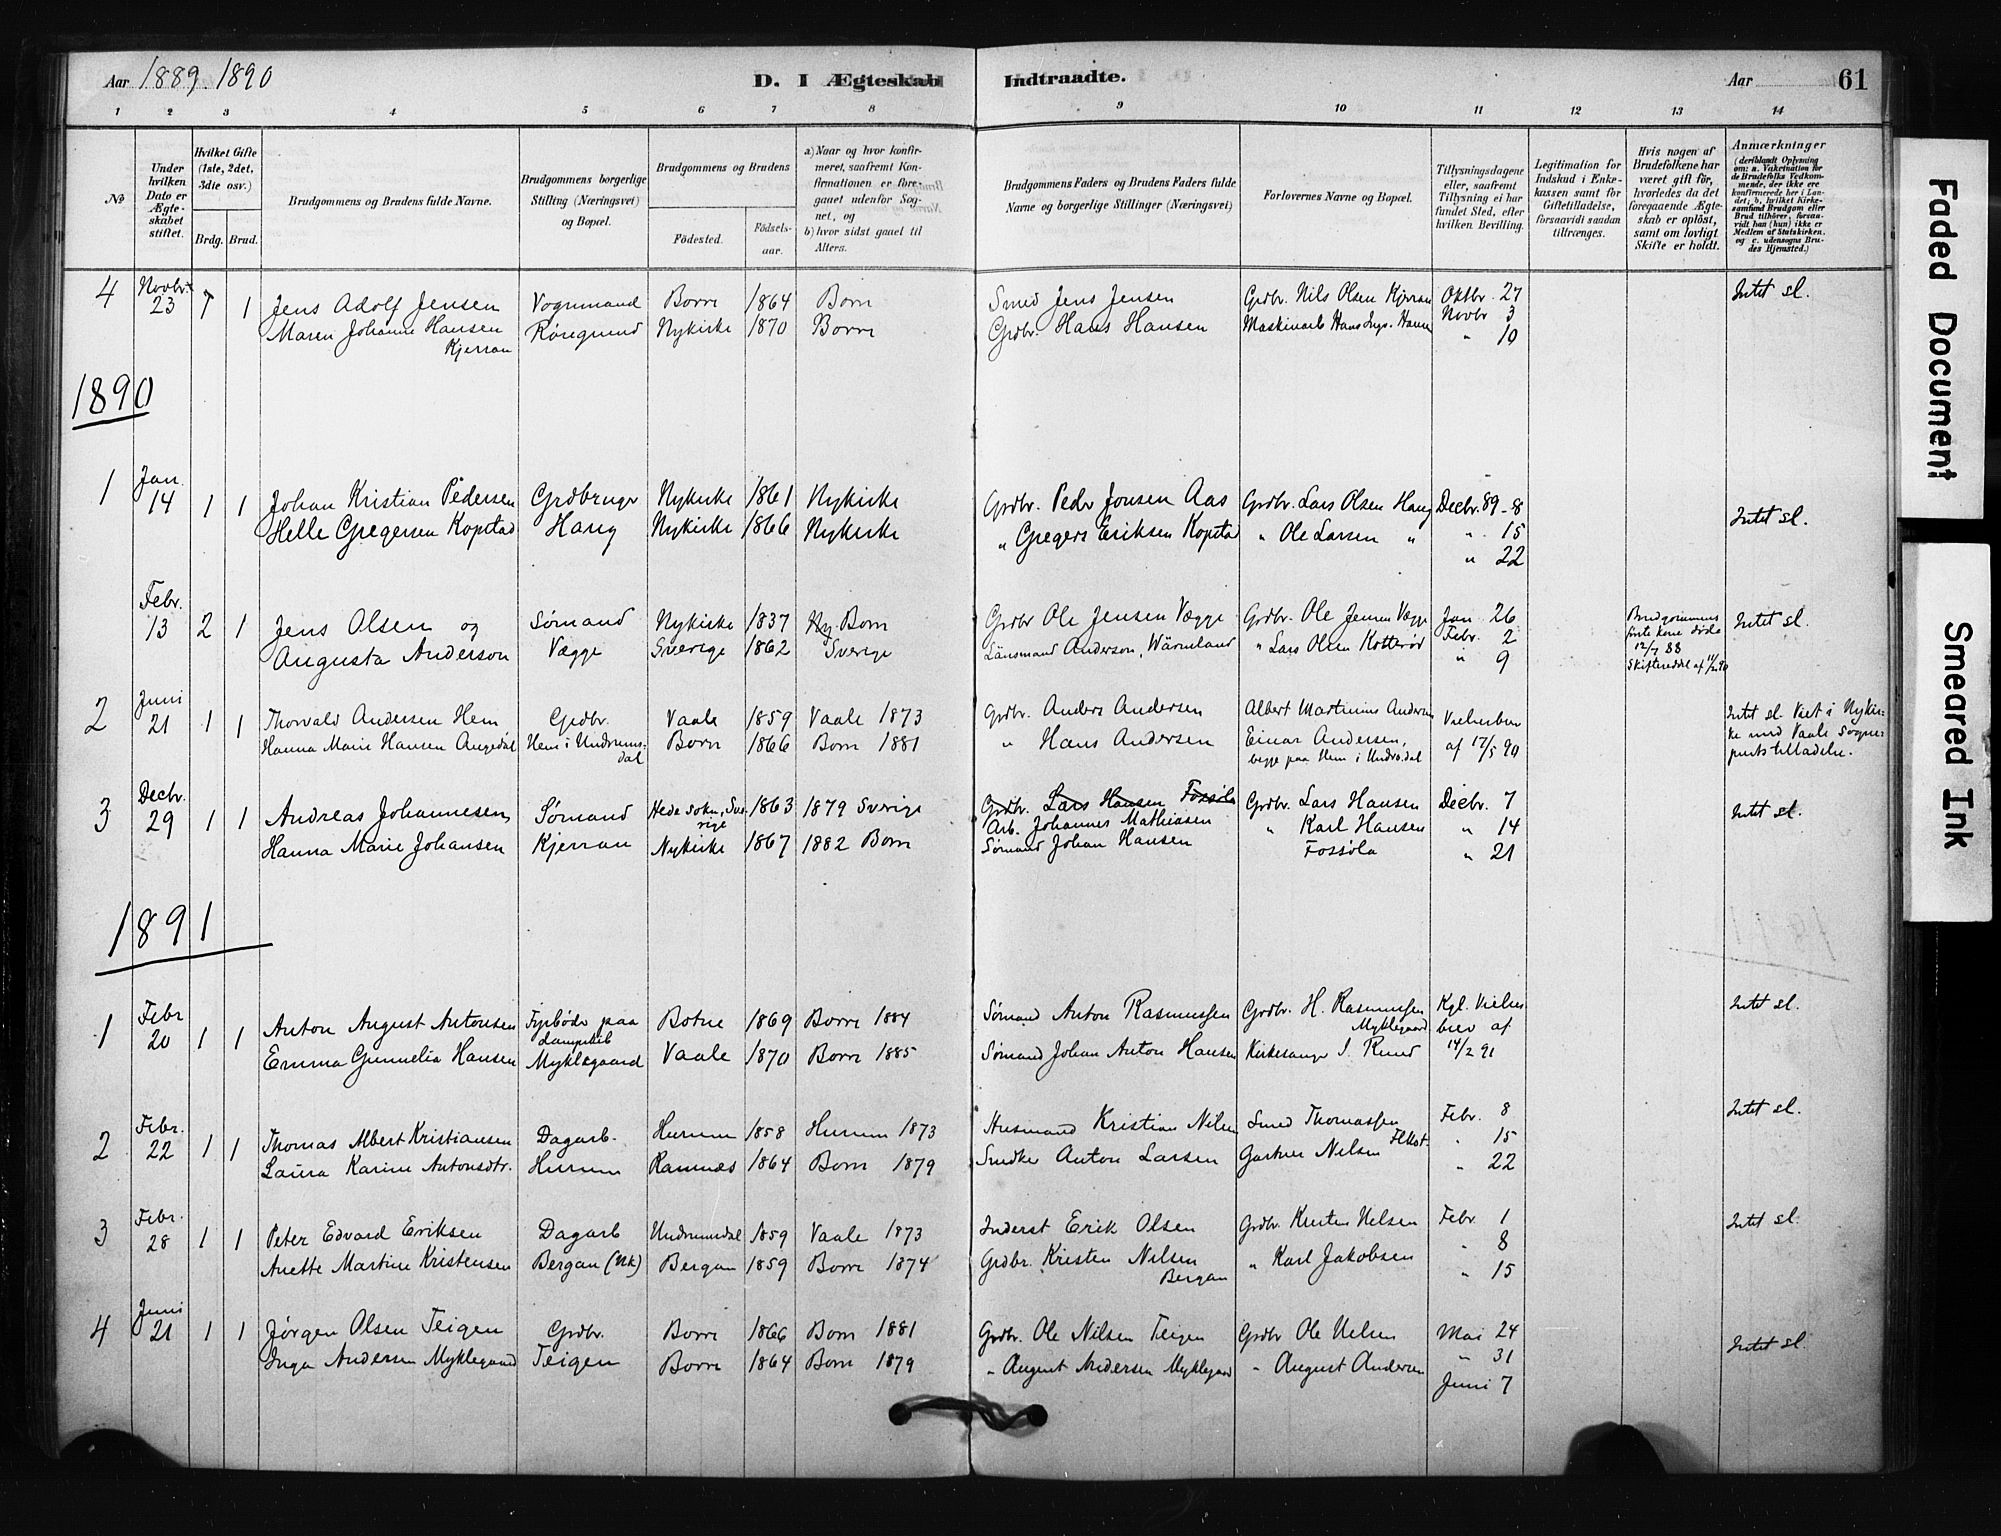 Aar 1889. 1890
D. I Ægteskab Indtraadte.
Aar 61
1 2 3 4 5 6 7 8 9 10 11 12 13 14
No
Under hvilken Dato er Ægteskabet stiftet.
Hvilket Gifte (1ste, 2det, 3die osv.)
Brdg. Brud.
Brudgommens og Brudens fulde Navne.
Brudgommens borgerlige Stilling (Næringsvei) og Bopæl.
Brudgommens og Brudens
Fødested. Fødselsaar.
a) Naar og hvor konfirmeret, saafremt Konfirmationen er foregaaet udenfor Sognet, og
b) hvor sidst gaaet til Alters.
Brudgommens Faders og Brudens Faders fulde Navne og borgerlige Stillinger (Næringsvei)
Forlovernes Navne og Bopæl.
Tillysningsdagene eller, saafremt Tillysning ei har fundet Sted, efter hvilken Bevilling.
Legitimation for Indskud i Enkekassen samt for Giftetilladelse, forsaavidt saadan tiltrænges.
Hvis nogen af Brudefolkene har været gift før, hvorledes da det foregaaende Ægteskab er opløst, samt om lovligt Skifte er holdt.
Anmærkninger
(deriblandt Oplysning om: a. Vakcination for de Brudefolks Vedkommende, der ikke ere konfirmerede her i Landet; b. hvilket Kirkesamfund Brudgom eller Brud tilhører, forsaavidt han (hun) ikke er Medlem af Statskirken. og c. udensogns Brudes Hjemsted.)
4 Novbr. 23 1 1 Jens Adolf Jensen Vognmand Borre 1864 Borre Smed Jens Jensen Grdbr. Nils Olsen Kjerran Oktbr. 27 Intet sl.
Maren Johanne Hansen Kjerran Nykirke 1870 Borre Grdbr. Hans Hansen Novbr 3
" 10
1890
1 Jan. 14 1 1 Johan Kristian Pedersen Grdbruger Nykirke 1861 Nykirke Grdbr. Peder Jonsen Aas Grdbr. Lars Olsen Haug Decbr. 89 - 8 Intet sl.
Helle Gregersen Kopstad Haug Nykirke 1866 Nykirke " Gregers Eriksen Kopstad " Ole Larsen " " 15
" 22
Febr. 13 2 1 Jens Olsen og Sømand Nykirke 1837 Borre Grdbr Ole Jensen Vægge Grdbr. Ole Jensen Vægge Jan 26 Brudgommens første kone døde 12/7 88 Intet sl.
Augusta Anderson Vægge Sverige 1862 Sverige Länsmand Anderson, Wärmland " Lars Olsen Febr. 2
" 9
2 Juni 21 1 1 Thorvald Andersen Hem Grdbr. Vaale 1859 Vaale 1873 Grdbr. Anders Andersen Albert Martinius Andersen Vielsesbrev Intet sl. Viet i Nykirke med Vaale Sogneprests tilladelse.
Hanna Marie Hansen Angedal Hem i Undrumsdal Borre 1866 Borre 1881 " Hans Andersen Einar Andersen, begge paa Hem i Undr.dal af 17/5 90
3 Decbr. 29 1 1 Andreas Johannesen Sømand Heda sokn, Sverige 1863 1879 Sverige Grdbr. Lars Hansen Fossøla Grdbr. Lars Hansen Decbr. 7 Intet sl.
Arb. Johannes Mathiasen " Karl Hansen " 14
Hanna Marie Johansen Kjerran Nykirke 1867 1882 Borre Sømand Johan Hansen Fossøla " 21
1891
1 Febr 20 1 1 Anton August Antonsen Fyrbøder paa dampskib Botne 1869 Borre 1884 Sømand Anton Rasmussen Grdbr. H. Rasmussen Myklegaard Kgl. Vielsesbrev af Intet sl.
Emma Gunnelia Hansen Myklegaard Vaale 1870 Borre 1885 Sømand Johan Anton Hansen Kirkesanger J. Ruud 14/2 91
2 Febr. 22 1 1 Thomas Albert Kristiansen Dagarb. Hurum 1858 Hurum 1873 Husmand Kristian Nilsen Smed Thomassen Febr. 8 Intet sl.
" 15
Laura Karine Antonsdtr. Hurum Ramnes 1864 Borre 1879 Snedker Anton Larsen Gartner Nilsen " 22
3 Febr. 28 1 1 Peter Edvard Eriksen Dagarb Undrumsdal 1859 Vaale 1873 Inderst Erik Olsen Grdbr. Kristen Nilsen Febr. 1 Intet sl.
" 8
Anette Martine Kristensen Bergan (Nk) Bergan 1859 Borre 1874 Grdbr. Kristen Nilsen Bergan " Karl Jakobsen " 15
4 Juni 21 1 1 Jørgen Olsen Teigen Grdbr. Borre 1866 Borre 1881 Grdbr. Ole Nilsen Teigen Grdbr Ole Nilsen Mai 24 Intet sl.
Inga Andersen Myklegaard Teigen Borre 1864 Borre 1879 " August Andersen Myklegaard " August Andersen " 31
Juni 7
Faded Document
Smeared Ink